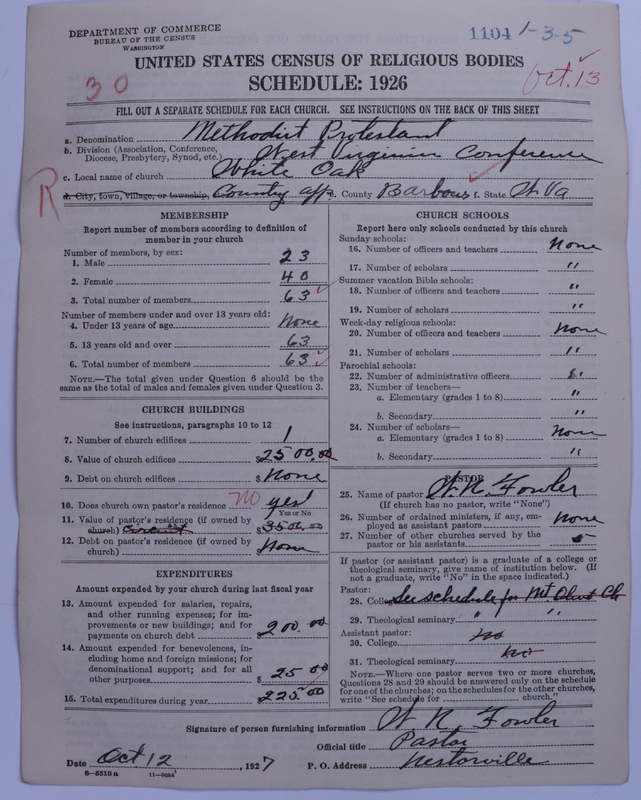 DEPARTMENT OF COMMERCE
BUREAU OF THE CENSUS
WASHINGTON
1104 1-3-5
UNITED STATES CENSUS OF RELIGIOUS BODIES
SCHEDULE: 1926
30
Oct. 13
FILL OUT A SEPARATE SCHEDULE FOR EACH CHURCH. SEE INSTRUCTIONS ON THE BACK OF THIS SHEET
a. Denomination Methodist Protestant
b. Division (Association, Conference, Diocese, Presbytery, Synod, etc.) West Virginia Conference
c. Local name of church White Oak
R
d. City, town, village, or township, Country app. County Barbour f. State W. Va
MEMBERSHIP
Report number of members according to definition of
member in your church
Number of members, by sex:
1. Male 23
2. Female 40
3. Total number of members 63
Number of members under and over 13 years old:
4. Under 13 years of age None
5. 13 years old and over 63
6. Total number of members 63
NOTE.—The total given under Question 6 should be the
same as the total of males and females given under Question 3.
CHURCH BUILDINGS
See instructions, paragraphs 10 to 12
7. Number of church edifices 1
8. Value of church edifices $2500.00
9. Debt on church edifices $None
10. Does church own pastor's residence no yes
Yes or No
11. Value of pastor's residence (if owned by
church) Circuit $3500.00
12. Debt on pastor's residence (if owned by
church) $None
EXPENDITURES
Amount expended by your church during last fiscal year
13. Amount expended for salaries, repairs,
and other running expenses; for im-
provements or new buildings; and for
payments on church debt 200.00
14. Amount expended for benevolences, in-
cluding home and foreign missions; for
denominational support; and for all
other purposes $25 00
15. Total expenditures during year $225.00
CHURCH SCHOOLS
Report here only schools conducted by this church
Sunday schools:
16. Number of officers and teachers None
17. Number of scholars "
Summer vacation Bible schools:
18. Number of officers and teachers "
19. Number of scholars "
Week-day religious schools:
20. Number of officers and teachers None
21. Number of scholars "
Parochial schools:
22. Number of administrative officers
23. Number of teachers—
a. Elementary (grades 1 to 8) "
b. Secondary "
24. Number of scholars—
a. Elementary (grades 1 to 8) None
b. Secondary "
PASTOR
25. Name of pastor W. N. Fowler
(If church has no pastor, write "None")
26. Number of ordained ministers, if any, em-
ployed as assistant pastors None
27. Number of other churches served by the
pastor or his assistants 5
If pastor (or assistant pastor) is a graduate of a college or
theological seminary, give name of institution below. (If
not a graduate, write "No" in the space indicated.)
Pastor:
28. College See schedule for Mt Olivet Ch
29. Theological seminary " "
Assistant pastor:
30. College no
31. Theological seminary no
NOTE.—Where one pastor serves two or more churches,
Questions 28 and 29 should be answered only on the schedule
for one of the churches; on the schedules for the other churches,
write "See schedule for church."
Signature of person furnishing information W. N. Fowler
Official title Pastor
Date Oct 12, 1927 P. O. Address Nestorville
8—5518a 11—9084